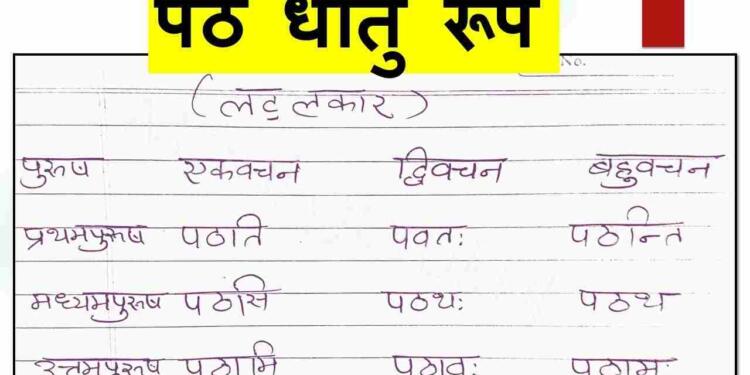 पठ धातु रूप
No.
(लट् लकार)
पुरुष एकवचन द्विवचन बहुवचन
प्रथमपुरुष पठति पवतः पठन्ति
मध्यमपुरुष पठसि पठथः पठथ
उत्तमपुरुष पठामि पठावः पठामः